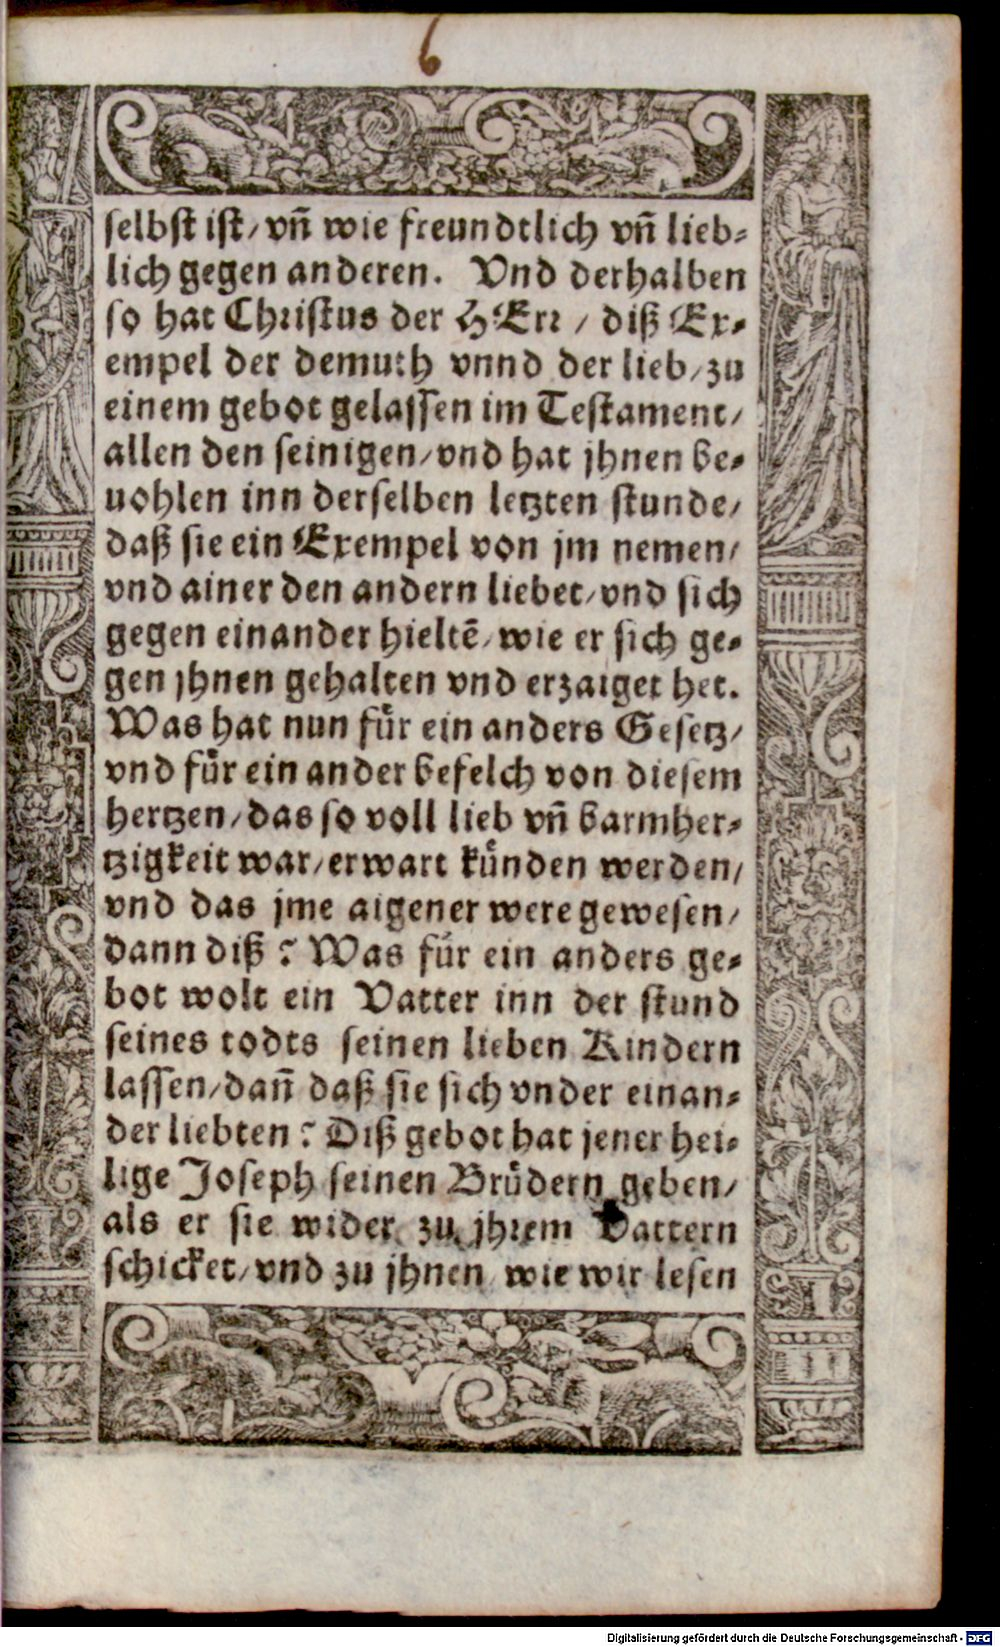 6
selbst ist/ vn̄ wie freundtlich vn̄ lieb-
lich gegen anderen. Vnd derhalben
so hat Christus der HErr / diß Ex-
empel der demuth vnnd der lieb/ zu
einem gebot gelassen im Testament/
allen den seinigen/ vnd hat jhnen be-
uohlen inn derselben letzten stunde/
daß sie ein Exempel von jm nemen/
vnd ainer den andern liebet/ vnd sich
gegen einander hieltē/ wie er sich ge-
gen jhnen gehalten vnd erzaiget het.
Was hat nun fuͤr ein anders Gesetz/
vnd fuͤr ein ander befelch von diesem
hertzen/ das so voll lieb vn̄ barmher-
tzigkeit war/ erwart kuͤnden werden/
vnd das jme aigener were gewesen/
dann diß? Was fuͤr ein anders ge-
bot wolt ein Vatter inn der stund
seines todts seinen lieben Kindern
lassen/ dan̄ daß sie sich vnder einan-
der liebten? Diß gebot hat jener hei-
lige Joseph seinen Bruͤdern geben/
als er sie wider zu jhrem Vattern
schicket/ vnd zu jhnen wie wir lesen
Digitalisierung gefördert durch die Deutsche Forschungsgemeinschaft - DFG